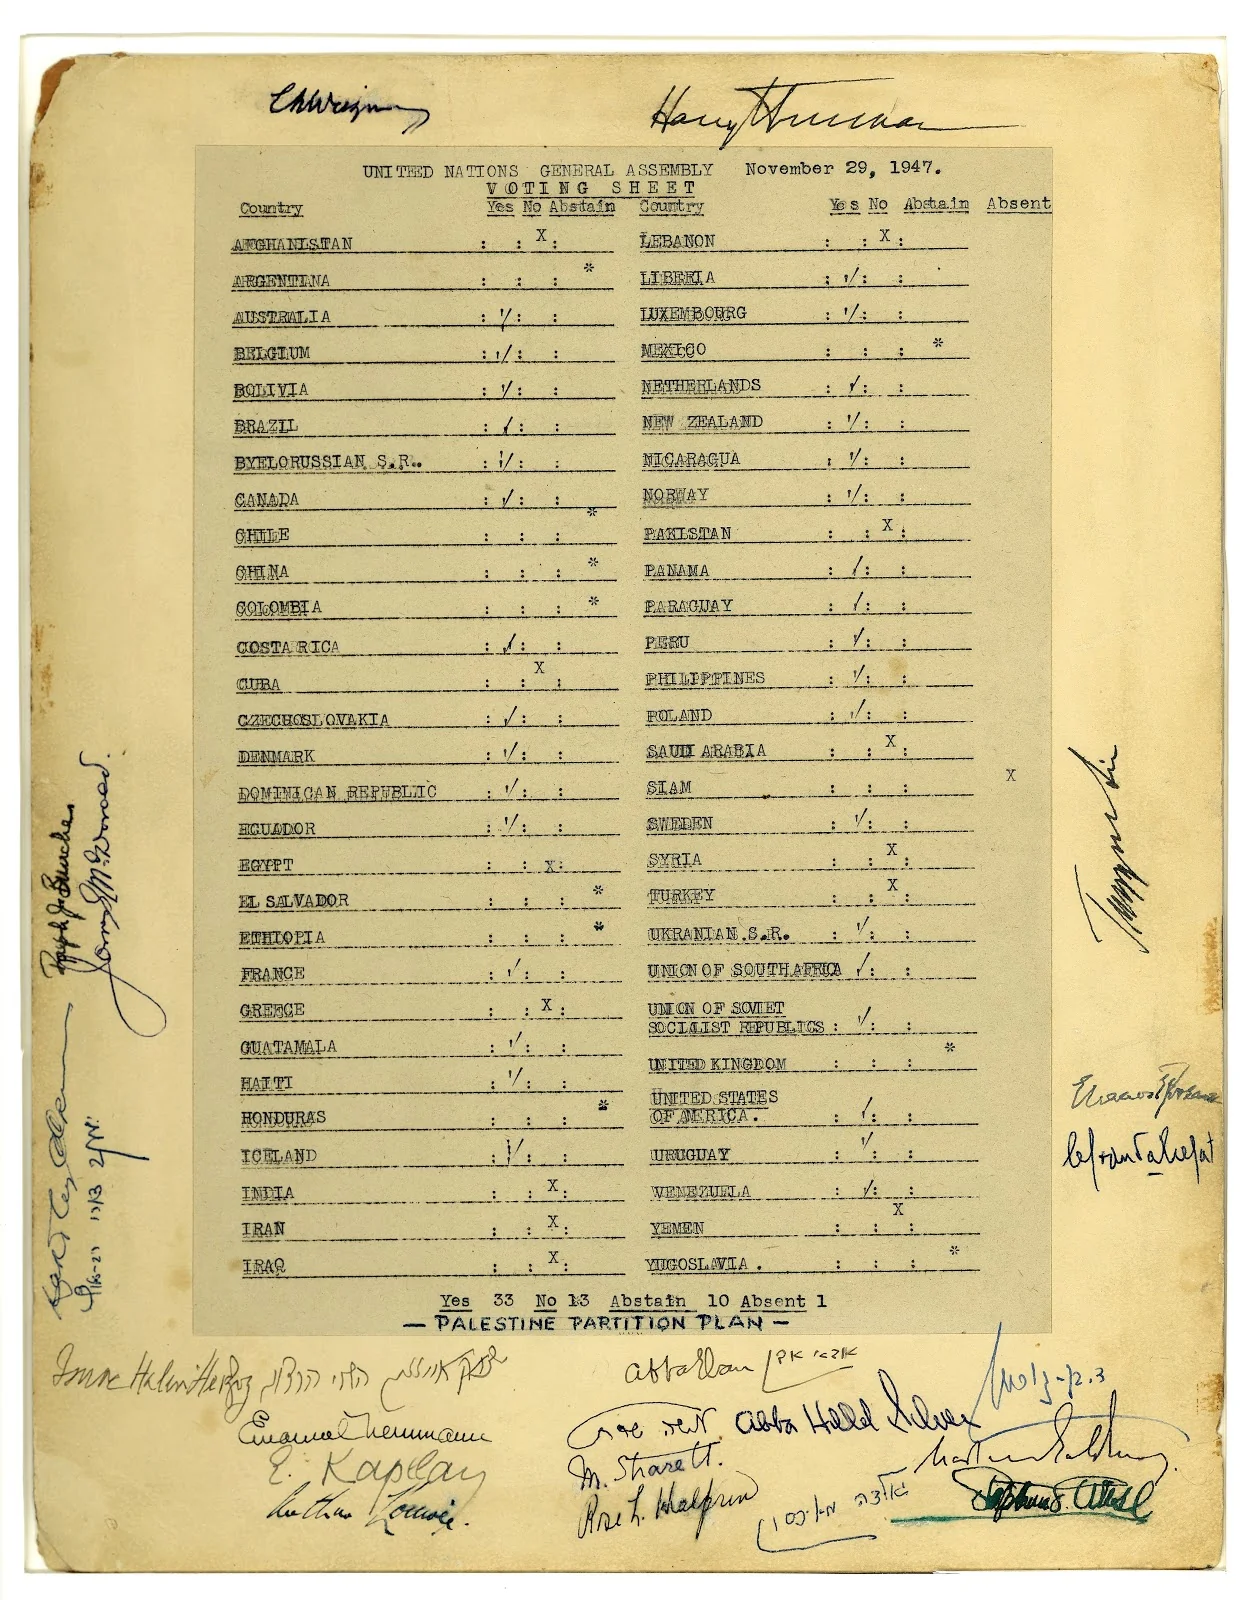 Harry Truman
UNITED NATIONS GENERAL ASSEMBLY November 29, 1947.
VOTING SHEET
Country Yes No Abstain Country Yes No Abstain Absent
AFGHANISTAN : : X : LEBANON : : X :
ARGENTINA : : : * LIBERIA : √ : :
AUSTRALIA : √ : : LUXEMBOURG : √ : :
BELGIUM : √ : : MEXICO : : : *
BOLIVIA : √ : : NETHERLANDS : √ : :
BRAZIL : √ : : NEW ZEALAND : √ : :
BYELORUSSIAN S.R.. : √ : : NICARAGUA : √ : :
CANADA : √ : : NORWAY : √ : :
CHILE : : : * PAKISTAN : : X :
CHINA : : : * PANAMA : √ : :
COLOMBIA : : : * PARAGUAY : √ : :
COSTA RICA : √ : : PERU : √ : :
CUBA : : X : PHILIPPINES : √ : :
CZECHOSLOVAKIA : √ : : POLAND : √ : :
DENMARK : √ : : SAUDI ARABIA : : X :
DOMINICAN REPUBLIC : √ : : SIAM : : : X
ECUADOR : √ : : SWEDEN : √ : :
EGYPT : : X : SYRIA : : X :
EL SALVADOR : : : * TURKEY : : X :
ETHIOPIA : : : * UKRANIAN S.R. : √ : :
FRANCE : √ : : UNION OF SOUTH AFRICA √ : :
GREECE : : X : UNION OF SOVIET
SOCIALIST REPUBLICS : √ : :
GUATAMALA : √ : : UNITED KINGDOM : : : *
HAITI : √ : : UNITED STATES
HONDURAS : : : * OF AMERICA. : √ : :
ICELAND : √ : : URUGUAY : √ : :
INDIA : : X : VENEZUELA : √ : :
IRAN : : X : YEMEN : : X :
IRAQ : : X : YUGOSLAVIA . : : : *
Yes 33 No 13 Abstain 10 Absent 1
— PALESTINE PARTITION PLAN —
Ralph J. Bunche
James G. McDonald.
Trygve Lie
Isaac Halevi Herzog יצחק אייזיק הלוי הרצוג
Abba Eban אבא אבן
משה שרת Abba Hillel Silver
Emanuel Neumann
M. Sharett.
E. Kaplan
Rose L. Halprin
גולדה מאירסון
Stephen S. Wise